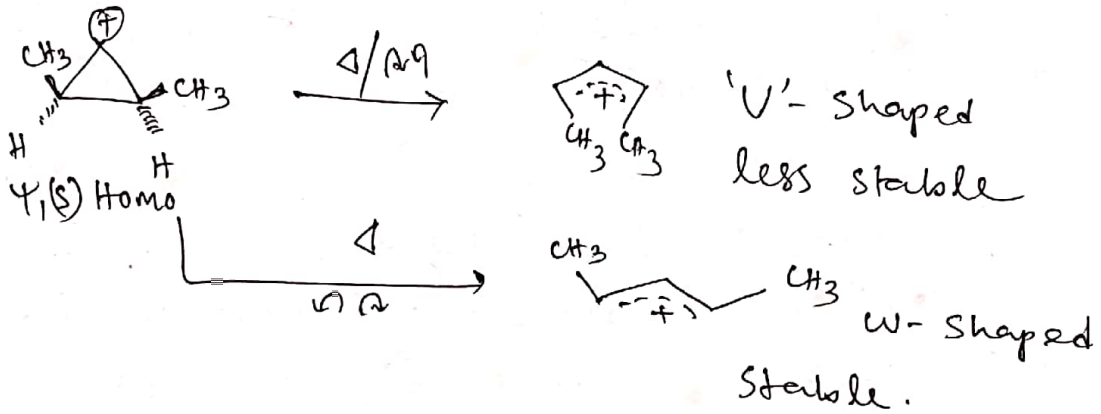 +
CH3
CH3
H
H
Ψ1(S) Homo
Δ/
+
CH3 CH3
'U'- shaped
less stable
Δ
CH3
CH3
+
W- shaped
Stable.